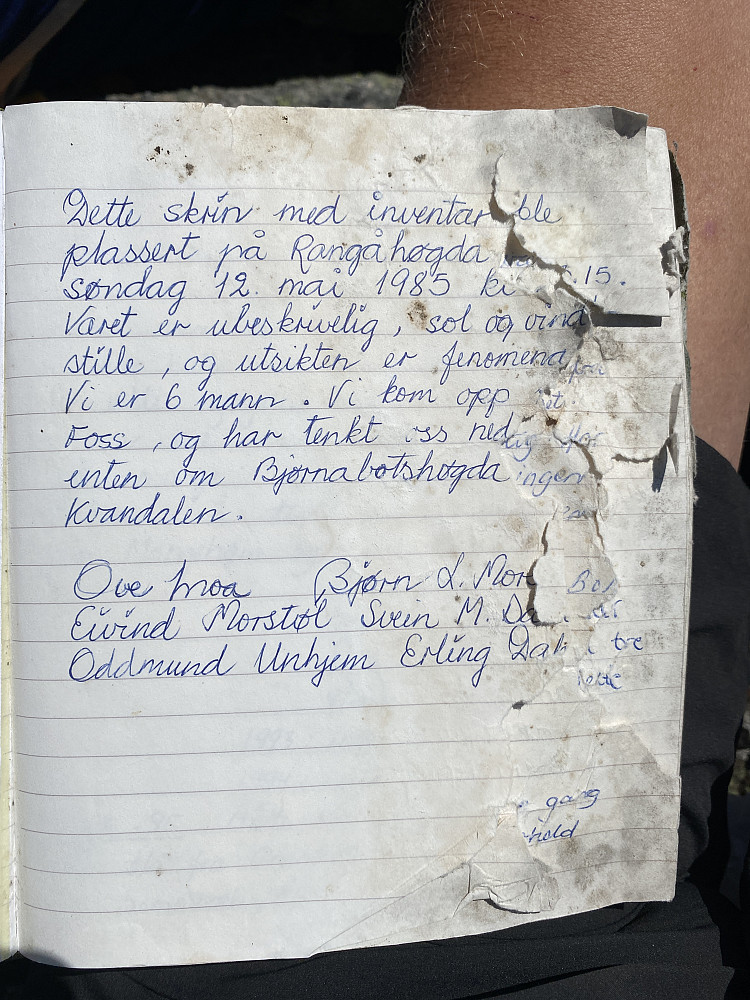 Dette skrin med inventar ble
plassert på Rangåhøgda
søndag 12. mai 1985 kl .15.
Været er ubeskrivelig, sol og vind
stille, og utsikten er
Vi er 6 mann. Vi kom opp
Foss, og har tenkt oss ned
enten om Bjørnabotshøgda
Kvandalen.
Ove Moa Bjørn L.
Eivind Morstøl Svein M.
Oddmund Unhjem Erling tre
gang